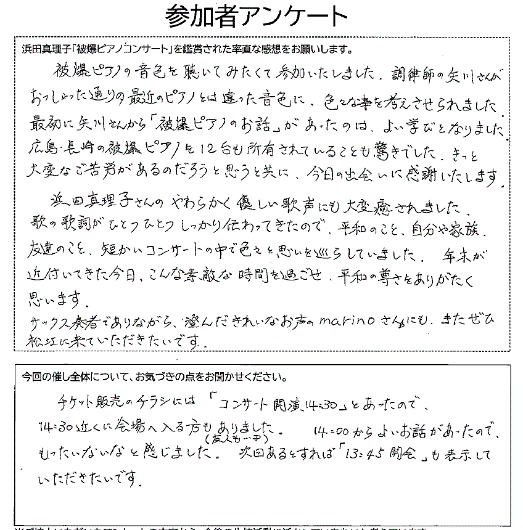 参加者アンケート
浜田真理子「被爆ピアノコンサート」を鑑賞された率直な感想をお願いします。
被爆ピアノの音色を聴いてみたくて参加いたしました。調律師の矢川さんが
おっしゃった通りの最近のピアノとは違った音色に、色々な事を考えさせられました。
最初に矢川さんから「被爆ピアノのお話」があったのは、よい学びとなりました。
広島・長崎の被爆ピアノを12台も所有されていることも驚きでした。きっと
大変なご苦労があるのだろうと思うと共に、今日の出会いに感謝いたします。
浜田真理子さんのやわらかく優しい歌声にも大変癒されました。
歌の歌詞がひとつひとつしっかり伝わってきたので、平和のこと、自分や家族、
友達のこと、短かいコンサートの中で色々と思いを巡らしていました。年末が
近付いてきた今日、こんな素敵な時間を過ごせ、平和の尊さをありがたく
思います。
サックス奏者でありながら、澄んだきれいなお声のmarinoさんにも、またぜひ
松江に来ていただきたいです。
今回の催し全体について、お気づきの点をお聞かせください。
チケット販売のチラシには「コンサート開演14:30」とあったので、
14:30近くに会場へ入る方もありました。(友人も一中) 14:00からよいお話があったので、
もったいないなと感じました。次回あるとすれば「13:45開会」も表示して
いただきたいです。